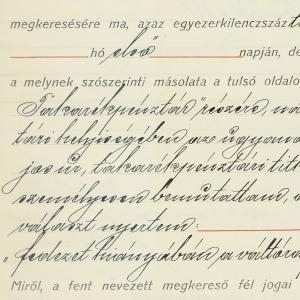 megkeresésére ma, azaz egyezerkilenczszáz
hó első napján, de
a melynek szószerinti másolata a tulsó oldalo
Takarékpénztár" részére, na
tári helyiségében az ugyana
jos úr, takarékpénztári tit
személyesen bemutattam, a
választ nyertem:
„fedezet hiányában a váltóra
Miről, a fent nevezett megkereső fél jogai